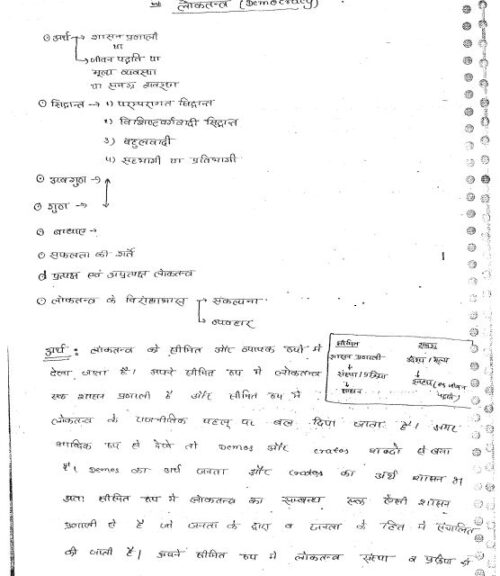 लोकतन्त्र (Democracy)
⊙ अर्थ → शासन प्रणाली
या
→ जीवन पद्धति या
मूल्य व्यवस्था
या समग्र व्यवस्था
⊙ सिद्धान्त → 1) परम्परागत सिद्धान्त
2) विशिष्टवर्गवादी सिद्धान्त
3) बहुलवादी
4) सहभागी या प्रतिभागी
⊙ अवगुण →
⊙ गुण →
⊙ बाधाएं →
⊙ सफलता की शर्तें
प्रत्यक्ष एवं अप्रत्यक्ष लोकतन्त्र
⊙ लोकतन्त्र के विरोधाभास → संकल्पना
→ व्यवहार
सीमित
शासन प्रणाली
↓
↓
शासन
अर्थ : लोकतन्त्र को सीमित और व्यापक रूपों में
देखा जाता है। अपने सीमित रूप में लोकतन्त्र
एक शासन प्रणाली है और सीमित रूप में
लोकतन्त्र के राजनीतिक पहलू पर बल दिया जाता है। अगर
शाब्दिक रूप से देखें तो Demos और cratos शब्दों से बना
है। Demos का अर्थ जनता और cratos का अर्थ शासन
अतः सीमित रूप में लोकतन्त्र का सम्बन्ध एक ऐसी शासन
प्रणाली से है जो जनता के द्वारा व जनता के हित में संचालित
की जाती है। अपने सीमित रूप में लोकतन्त्र संस्था व